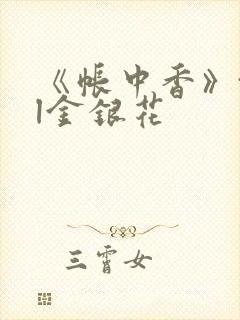 《帐中香》
|金银花
三霄女